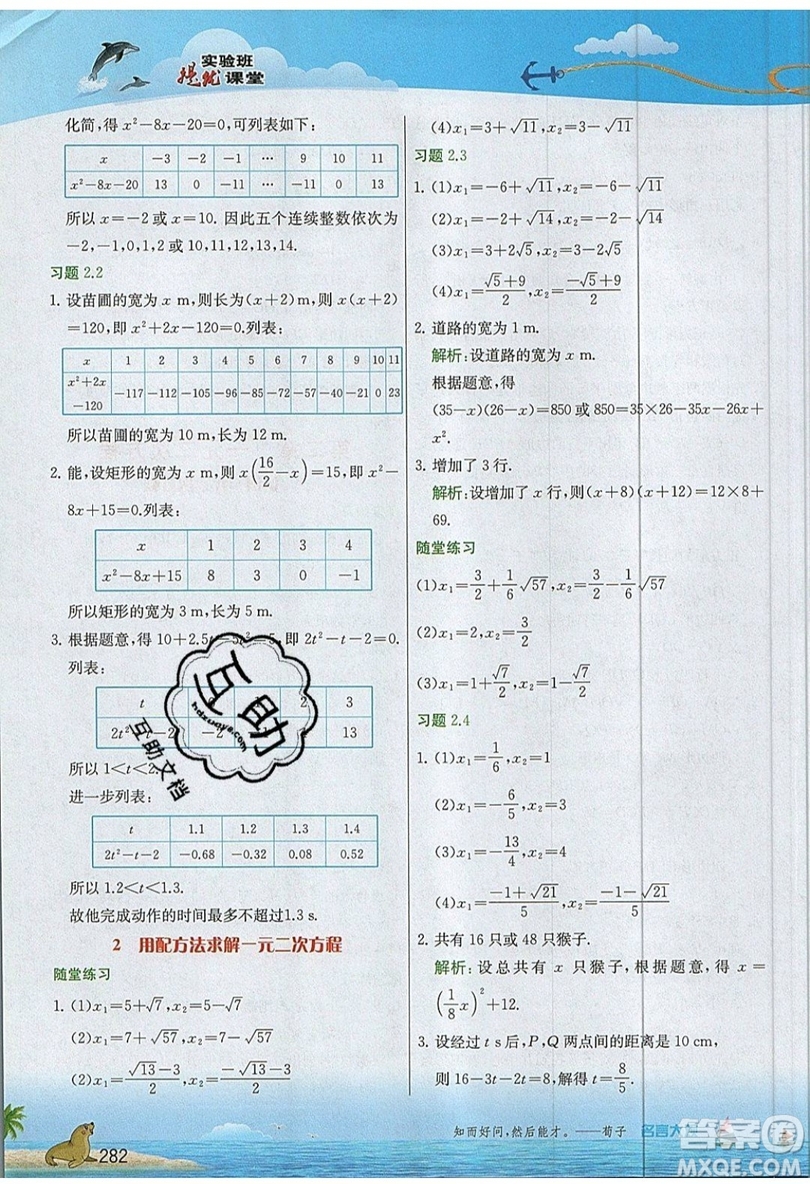 实验班
提优课堂
化简,得 x²-8x-20=0,可列表如下:
x -3 -2 -1 … 9 10 11
x²-8x-20 13 0 -11 … -11 0 13
所以 x=-2 或 x=10. 因此五个连续整数依次为
-2,-1,0,1,2 或 10,11,12,13,14.
习题 2.2
1. 设苗圃的宽为 x m,则长为(x+2)m,则 x(x+2)
=120,即 x²+2x-120=0.列表:
x 1 2 3 4 5 6 7 8 9 10 11
x²+2x
-120 -117 -112 -105 -96 -85 -72 -57 -40 -21 0 23
所以苗圃的宽为 10 m,长为 12 m.
2. 能,设矩形的宽为 x m,则 x(16/2-x)=15,即 x²-
8x+15=0.列表:
x 1 2 3 4
x²-8x+15 8 3 0 -1
所以矩形的宽为 3 m,长为 5 m.
3. 根据题意,得 10+2.5t-5t²=5,即 2t²-t-2=0.
列表:
t 2 3
2t²-t-2 -2 13
所以 1<t<2.
进一步列表:
t 1.1 1.2 1.3 1.4
2t²-t-2 -0.68 -0.32 0.08 0.52
所以 1.2<t<1.3.
故他完成动作的时间最多不超过1.3 s.
2 用配方法求解一元二次方程
随堂练习
1. (1)x₁=5+√7,x₂=5-√7
(2)x₁=7+√57,x₂=7-√57
(2)x₁=(√13-3)/2,x₂=(-√13-3)/2
(4)x₁=3+√11,x₂=3-√11
习题 2.3
1. (1)x₁=-6+√11,x₂=-6-√11
(2)x₁=-2+√14,x₂=-2-√14
(3)x₁=3+2√5,x₂=3-2√5
(4)x₁=(√5+9)/2,x₂=(-√5+9)/2
2. 道路的宽为 1 m.
解析:设道路的宽为 x m.
根据题意,得
(35-x)(26-x)=850 或 850=35×26-35x-26x+
x².
3. 增加了 3 行.
解析:设增加了 x 行,则(x+8)(x+12)=12×8+
69.
随堂练习
(1)x₁=3/2+1/6√57,x₂=3/2-1/6√57
(2)x₁=2,x₂=3/2
(3)x₁=1+√7/2,x₂=1-√7/2
习题 2.4
1. (1)x₁=1/6,x₂=1
(2)x₁=-6/5,x₂=3
(3)x₁=-13/4,x₂=4
(4)x₁=(-1+√21)/5,x₂=(-1-√21)/5
2. 共有 16 只或 48 只猴子.
解析:设总共有 x 只猴子,根据题意,得 x=
(1/8x)²+12.
3. 设经过 t s后,P,Q 两点间的距离是 10 cm,
则 16-3t-2t=10,解得 t=8/5.
互助
hdzuoye.com
互助文档
282
知而好问,然后能才。——荀子
名言大
答案圈
MXQE.COM